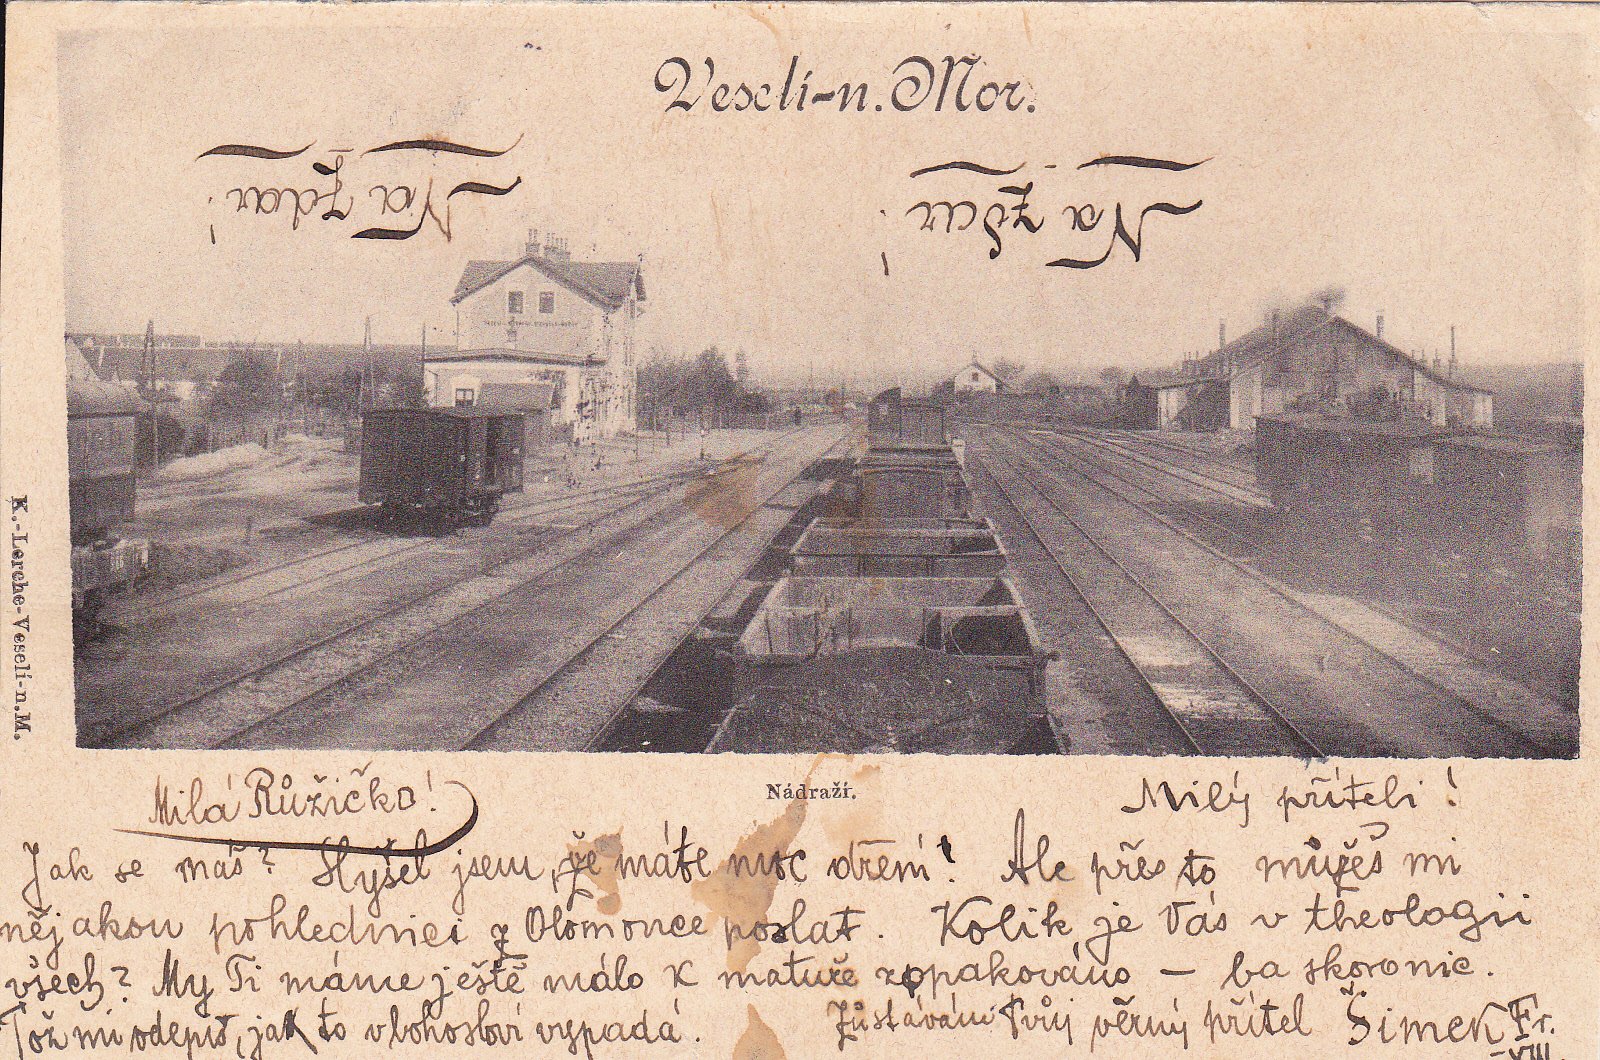 Veselí-n. Mor.
Na zdar!
Na zdar!
K.-Lerche-Veselí-n. M.
Nádraží.
Milá Růžičko!
Milý příteli!
Jak se máš? Slyšel jsem, že máte moc dření! Ale přes to můžeš mi
nějakou pohlednici z Olomouce poslat. Kolik je Vás v theologii
všech? My Ti máme ještě málo k matuře zopakováno – ba skoro nic.
Tož mi odepiš, jak to v bohosloví vypadá. Zůstávám Tvůj věrný přítel Šimek Fr.
VIII.